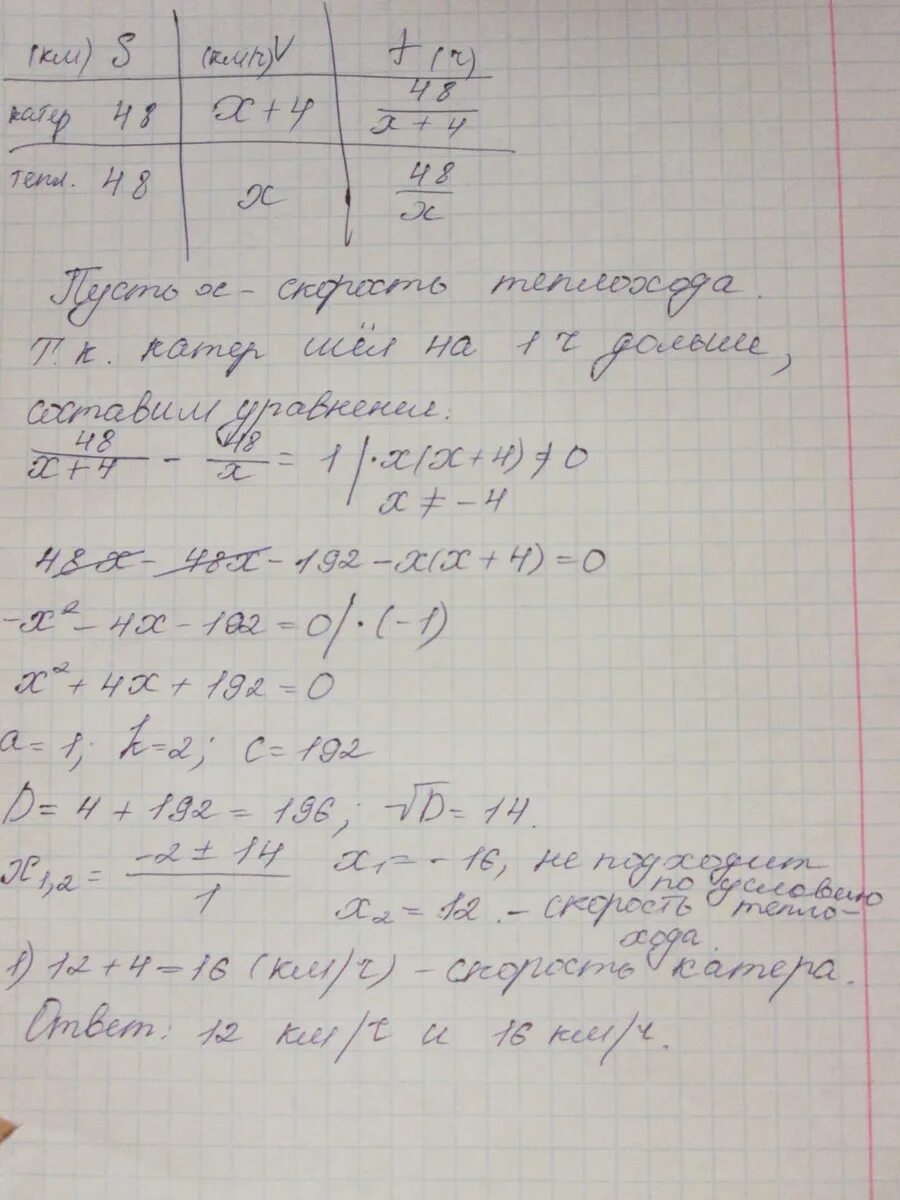 (км) S (км/ч) V t (ч)
катер 48 x + 4 48/(x + 4)
тепл. 48 x 48/x
Пусть x - скорость теплохода.
Т.к. катер шёл на 1 ч дольше,
составим уравнение.
48/(x+4) - 48/x = 1 | · x(x+4) ≠ 0
x ≠ -4
48x - 48x - 192 - x(x + 4) = 0
-x² - 4x - 192 = 0 | · (-1)
x² + 4x + 192 = 0
a = 1; k = 2; c = 192
D = 4 + 192 = 196; √D = 14.
x1,2 = (-2 ± 14)/1 x1 = -16, не подходит по условию
x2 = 12. - скорость тепло-
хода.
1) 12 + 4 = 16 (км/ч) - скорость катера.
Ответ: 12 км/ч и 16 км/ч.